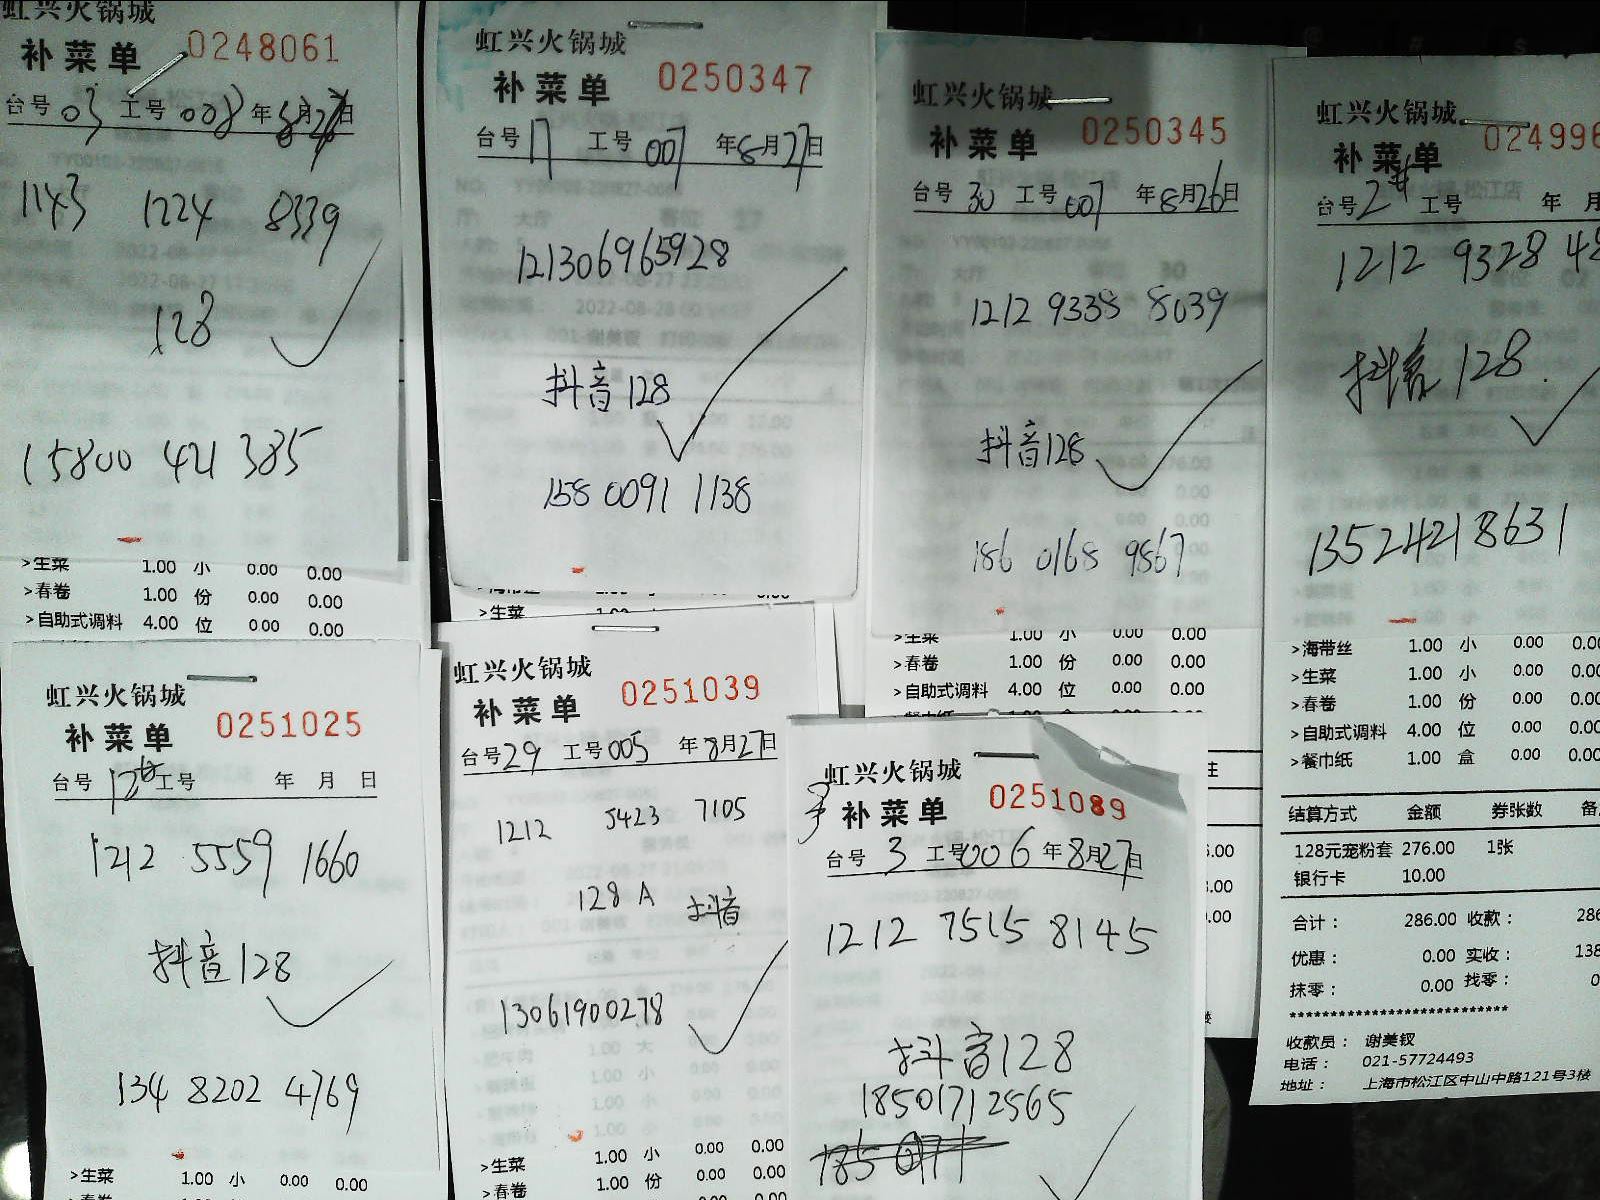 虹兴火锅城
补菜单 0248061
台号 03 工号 008 年 8月27日
1143 1224 8339
128
15800 421 385
>生菜 1.00 小 0.00 0.00
>春卷 1.00 份 0.00 0.00
>自助式调料 4.00 位 0.00 0.00
虹兴火锅城
补菜单 0250347
台号 17 工号 007 年8月27日
121306965928
抖音128
158 0091 1138
>生菜
虹兴火锅城
补菜单 0250345
台号 30 工号 007 年8月26日
1212 9338 8039
抖音128
186 0168 9867
>生菜 1.00 小 0.00 0.00
>春卷 1.00 份 0.00 0.00
>自助式调料 4.00 位 0.00 0.00
虹兴火锅城
补菜单 024996
台号 2# 工号 年 月
1212 9328 48
抖音128.
13524218631
>海带丝 1.00 小 0.00 0.00
>生菜 1.00 小 0.00 0.00
>春卷 1.00 份 0.00 0.00
>自助式调料 4.00 位 0.00 0.00
>餐巾纸 1.00 盒 0.00 0.00
结算方式 金额 券张数 备
128元宠粉套 276.00 1张
银行卡 10.00
合计： 286.00 收款： 286
优惠： 0.00 实收： 138
抹零： 0.00 找零： 0
***************************
收款员： 谢美钗
电话： 021-57724493
地址： 上海市松江区中山中路121号3楼
虹兴火锅城
补菜单 0251025
台号 12# 工号 年 月 日
1212 5559 1660
抖音128
134 8202 4769
>生菜 1.00 小 0.00 0.00
>春卷
虹兴火锅城
补菜单 0251039
台号29 工号005 年8月27日
1212 5423 7105
128 A 抖音
13061900278
>生菜 1.00 小 0.00 0.00
>春卷 1.00 份 0.00 0.00
虹兴火锅城
补菜单 0251089
台号 3 工号006 年8月27日
1212 7515 8145
抖音128
18501712565